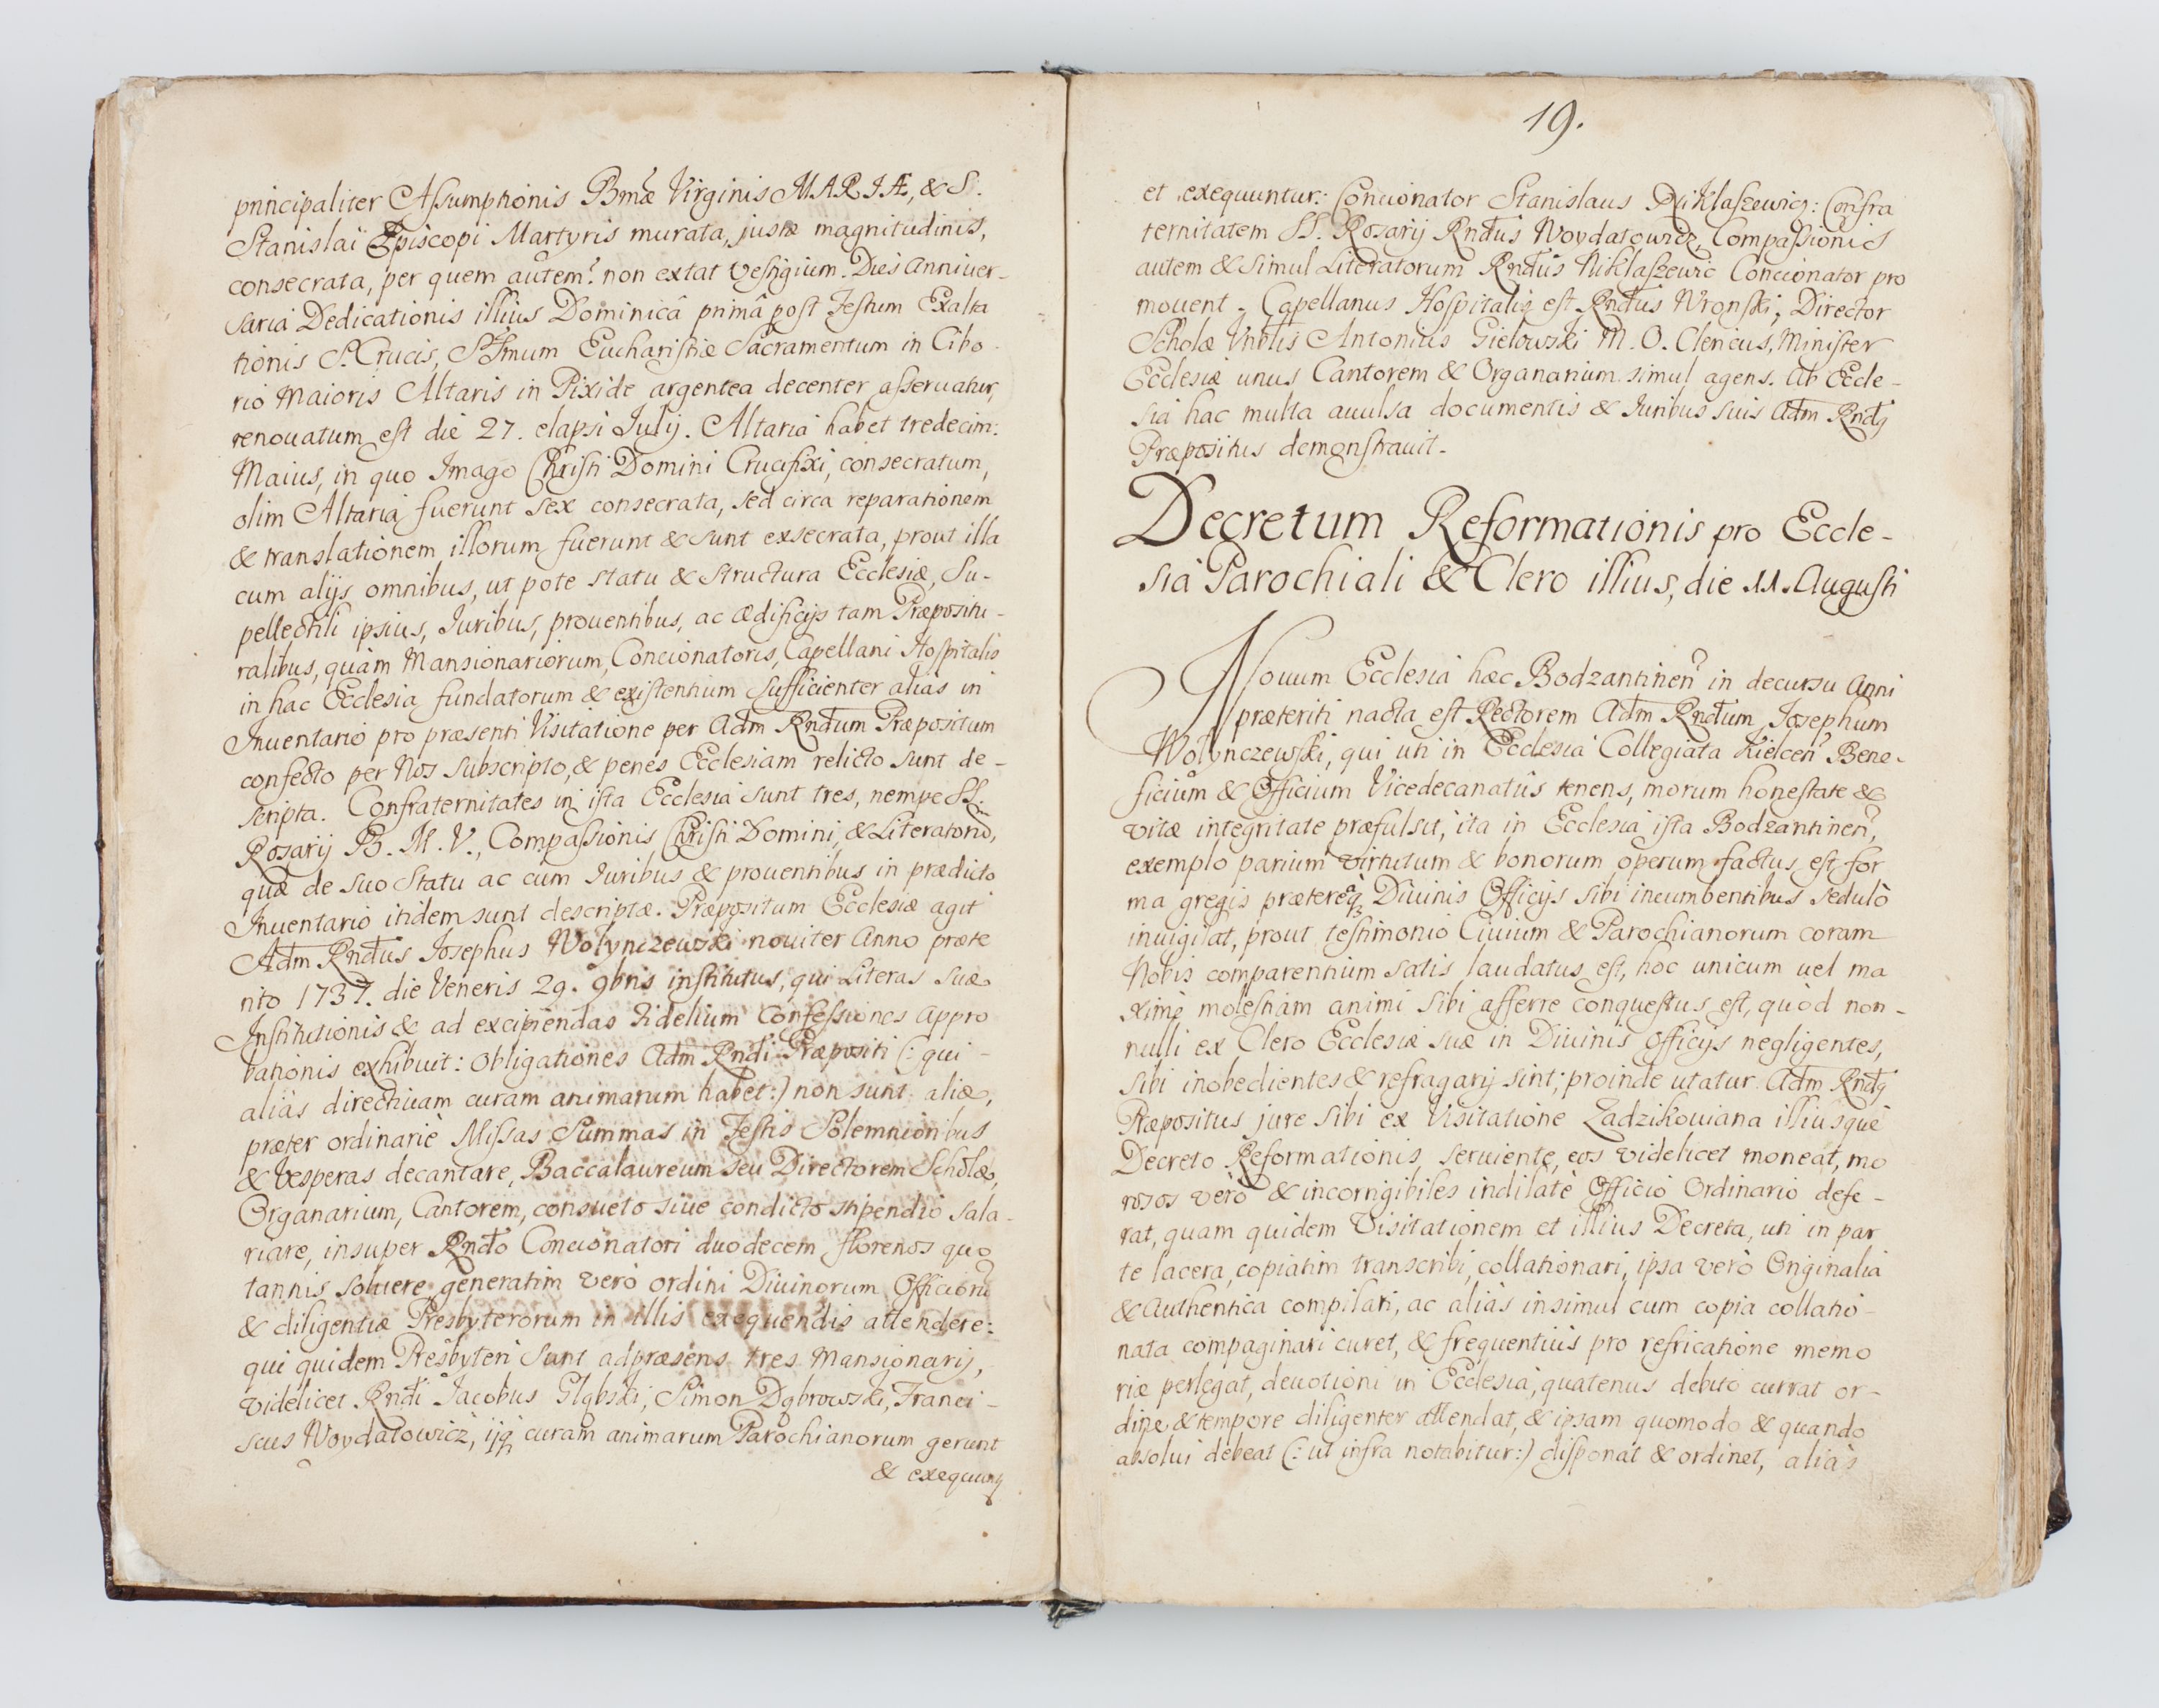 principaliter Assumptionis Bmæ Virginis MARIÆ, & S.
Stanislai Episcopi Martyris murata, justæ magnitudinis,
consecrata, per quem autem? non extat vestigium. Dies Anniver-
saria Dedicationis illius Dominicâ primâ post Festum Exalta
tionis S. Crucis, SSmum Eucharistiæ Sacramentum in Cibo-
rio Maioris Altaris in Pixide argentea decenter asseruatur,
renouatum est die 27. elapsi Julij. Altaria habet tredecim:
Maius, in quo Imago Christi Domini Crucifixi, consecratum,
olim Altaria fuerunt sex consecrata, sed circa reparationem
& translationem illorum fuerunt & sunt exsecrata, prout illa
cum alijs omnibus, ut pote statu & structura Ecclesiæ, Su-
pellectili ipsius, Iuribus, prouentibus, ac ædificijs tam Præpositu-
ralibus, quàm Mansionariorum, Concionatoris, Capellani Hospitalis
in hac Ecclesia fundatorum & existentium sufficienter aliàs in
Inuentario pro præsenti Visitatione per Adm Rndum Præpositum
confecto per Nos subscripto, & penes Ecclesiam relicto sunt de-
scripta. Confraternitates in ista Ecclesia sunt tres, nempe SS.
Rosarij B. M. V., Compassionis Christi Domini, & Literatorũ,
quæ de suo statu ac cum Iuribus & prouentibus in prædicto
Inuentario itidem sunt descriptæ. Præpositum Ecclesiæ agit
Adm Rndus Josephus Wolynczewski nouiter Anno præte
rito 1737. die Veneris 29. 9bris institutus, qui Literas suæ
Institutionis & ad excipiendas Fidelium Confessiones Appro
bationis exhibuit: Obligationes Adm Rndi Præpositi (: qui
aliàs directiuam curam animarum habet:) non sunt aliæ,
præter ordinariè Missas Summas in Festis Solemnioribus
& Vesperas decantare, Baccalaureum seu Directorem Scholæ,
Organarium, Cantorem, consueto siue condicto stipendio sala-
riare, insuper Rndo Concionatori duodecem florenos quo
tannis soluere, generatim verò ordini Diuinorum Officiorũ
& diligentiæ Presbyterorum in illis exequendis attendere:
qui quidem Presbyteri sunt adpræsens tres Mansionarij,
videlicet Rndi Jacobus Głąbski, Simon Dąbrowski, Franci-
scus Woydatowicz, ijq; curam animarum Parochianorum gerunt
& exequunt
19.
et exequuntur: Concionator Stanislaus Niklaszewicz: Confra
ternitatem SS. Rosarij Rndus Woydatowicz, Compassionis
autem & simul Literatorum Rndus Niklaszewic Concionator pro
mouent. Capellanus Hospitalis est Rndus Wronski; Director
Scholæ Antonius Gielowski M. O. Clericus, Minister
Ecclesiæ unus Cantorem & Organarium simul agens. Ab Eccle-
sia hac multa auulsa documentis & Iuribus suis Adm Rndq
Præpositus demonstrauit.
Decretum Reformationis pro Eccle-
sia Parochiali & Clero illius, die 11. Augusti
Nouum Ecclesia hæc Bodzantinen in decursu Anni
præteriti nacta est Rectorem Adm Rndum Josephum
Wolynczewski, qui uti in Ecclesia Collegiata Kielcen Bene-
ficium & Officium Vicedecanatûs tenens, morum honestate &
vitæ integritate præfulsit, ita in Ecclesia ista Bodzantinen,
exemplo parium virtutum & bonorum operum factus est for
ma gregis prætereaq; Diuinis Officijs sibi incumbentibus sedulò
inuigilat, prout testimonio Ciuium & Parochianorum coram
Nobis comparentium satis laudatus est, hoc unicum uel ma
ximè molestiam animi sibi afferre conquestus est, quòd non-
nulli ex Clero Ecclesiæ suæ in Diuinis officijs negligentes,
sibi inobedientes & refragarij sint; proinde utatur Adm Rndq
Præpositus jure sibi ex Visitatione Zadzikouiana illiusque
Decreto Reformationis seruiente, eos videlicet moneat, mo
rosos verò & incorrigibiles indilatè Officio Ordinario defe-
rat, quam quidem Visitationem et illius Decreta, uti in par
te lacera, copiatim transcribi, collationari, ipsa verò Originalia
& Authentica compilari, ac aliàs insimul cum copia collatio-
nata compaginari curet, & frequentius pro refricatione memo
riæ perlegat, deuotioni in Ecclesia, quatenus debito currat or-
dine & tempore diligenter attendat, & ipsam quomodo & quando
absolui debeat (: ut infra notabitur:) disponat & ordinet, aliàs